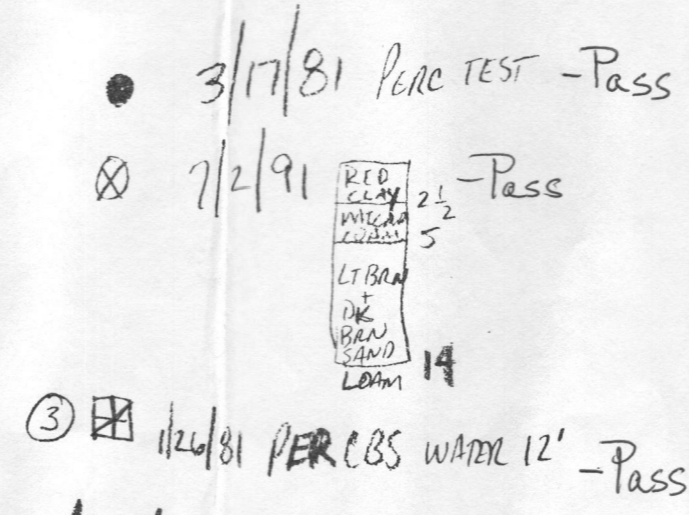 3/17/81 PERC TEST - Pass
7/2/91 - Pass
RED
CLAY 2 1/2
MICRA
LOAM 5
LT BRN
+
DK
BRN
SAND
LOAM 14
3 1/26/81 PER CBS WATER 12' - Pass